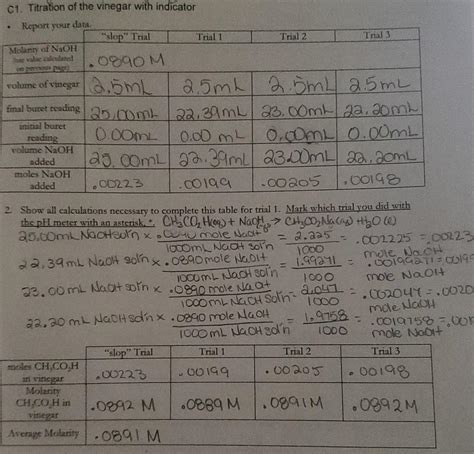 C1. Titration of the vinegar with indicator
• Report your data.
"slop" Trial Trial 1 Trial 2 Trial 3
Molarity of NaOH
(use value calculated
on previous page) .0890 M
volume of vinegar 2.5mL 2.5mL 2.5mL 2.5mL
final buret reading 25.00mL 22.39mL 23.00mL 22.20mL
initial buret
reading 0.00mL 0.00 mL 0.00mL 0.00mL
volume NaOH
added 25.00mL 22.39mL 23.00mL 22.20mL
moles NaOH
added .00223 .00199 .00205 .00198
2. Show all calculations necessary to complete this table for trial 1. Mark which trial you did with
the pH meter with an asterisk, *. CH₃CO₂H(aq) + NaOH → CH₃CO₂Na(aq) H₂O(l)
25.00mL NaOH soln × mole NaOH = 2.225 = .002225 = .00223
1000mL NaOH soln 1000 mole NaOH
22.39mL NaOH soln × .0890 mole NaOH = 1.99271 = .00199271 =
1000mL NaOH soln 1000 mole NaOH
23.00 mL NaOH soln × .0890 mole NaOH = 2.047 = .002047 =
1000mL NaOH soln 1000 mole NaOH
22.20 mL NaOH soln × .0890 mole NaOH = 1.9758 = .0019758 =
1000mL NaOH soln 1000 mole NaOH
"slop" Trial Trial 1 Trial 2 Trial 3
moles CH₃CO₂H
in vinegar .00223 .00199 .00205 .00198
Molarity
CH₃CO₂H in
vinegar .0892 M .0889 M .0891 M .0892 M
Average Molarity .0891 M